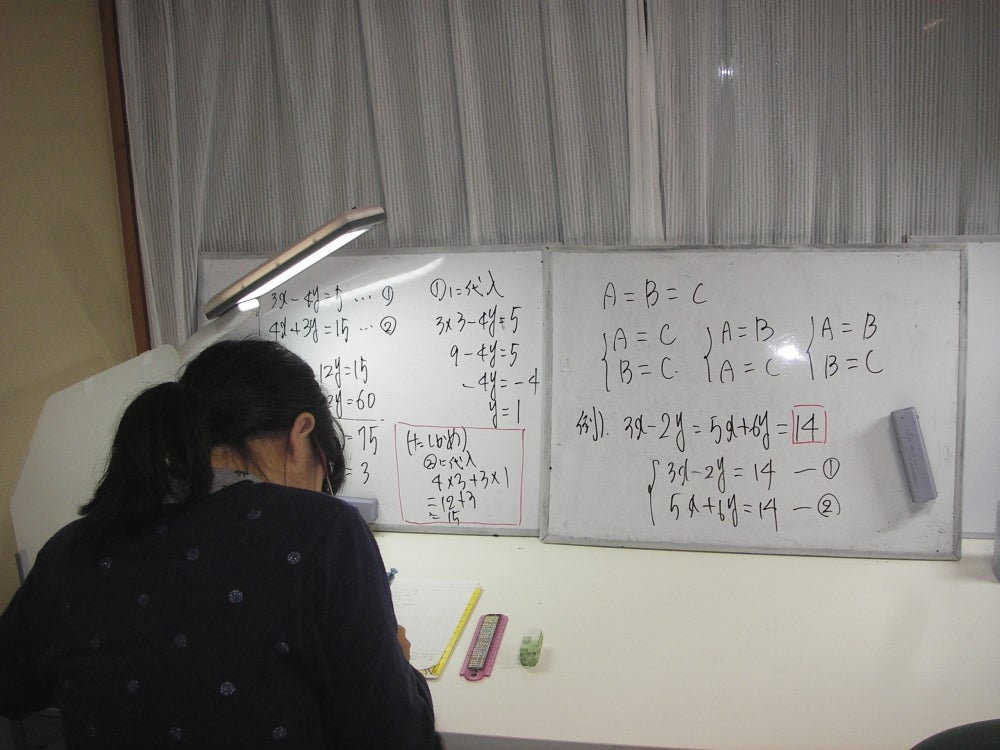 3x-4y=5 … ①
4x+3y=15 … ②
12y=15
2y=60
=75
=3
①に代入
3×3-4y=5
9-4y=5
-4y=-4
y=1
(たしかめ)
②に代入
4×3+3×1
=12+3
=15
A=B=C
A=C A=B A=B
B=C. A=C B=C
例). 3x-2y=5x+6y=14
3x-2y=14 ー①
5x+6y=14 ー②